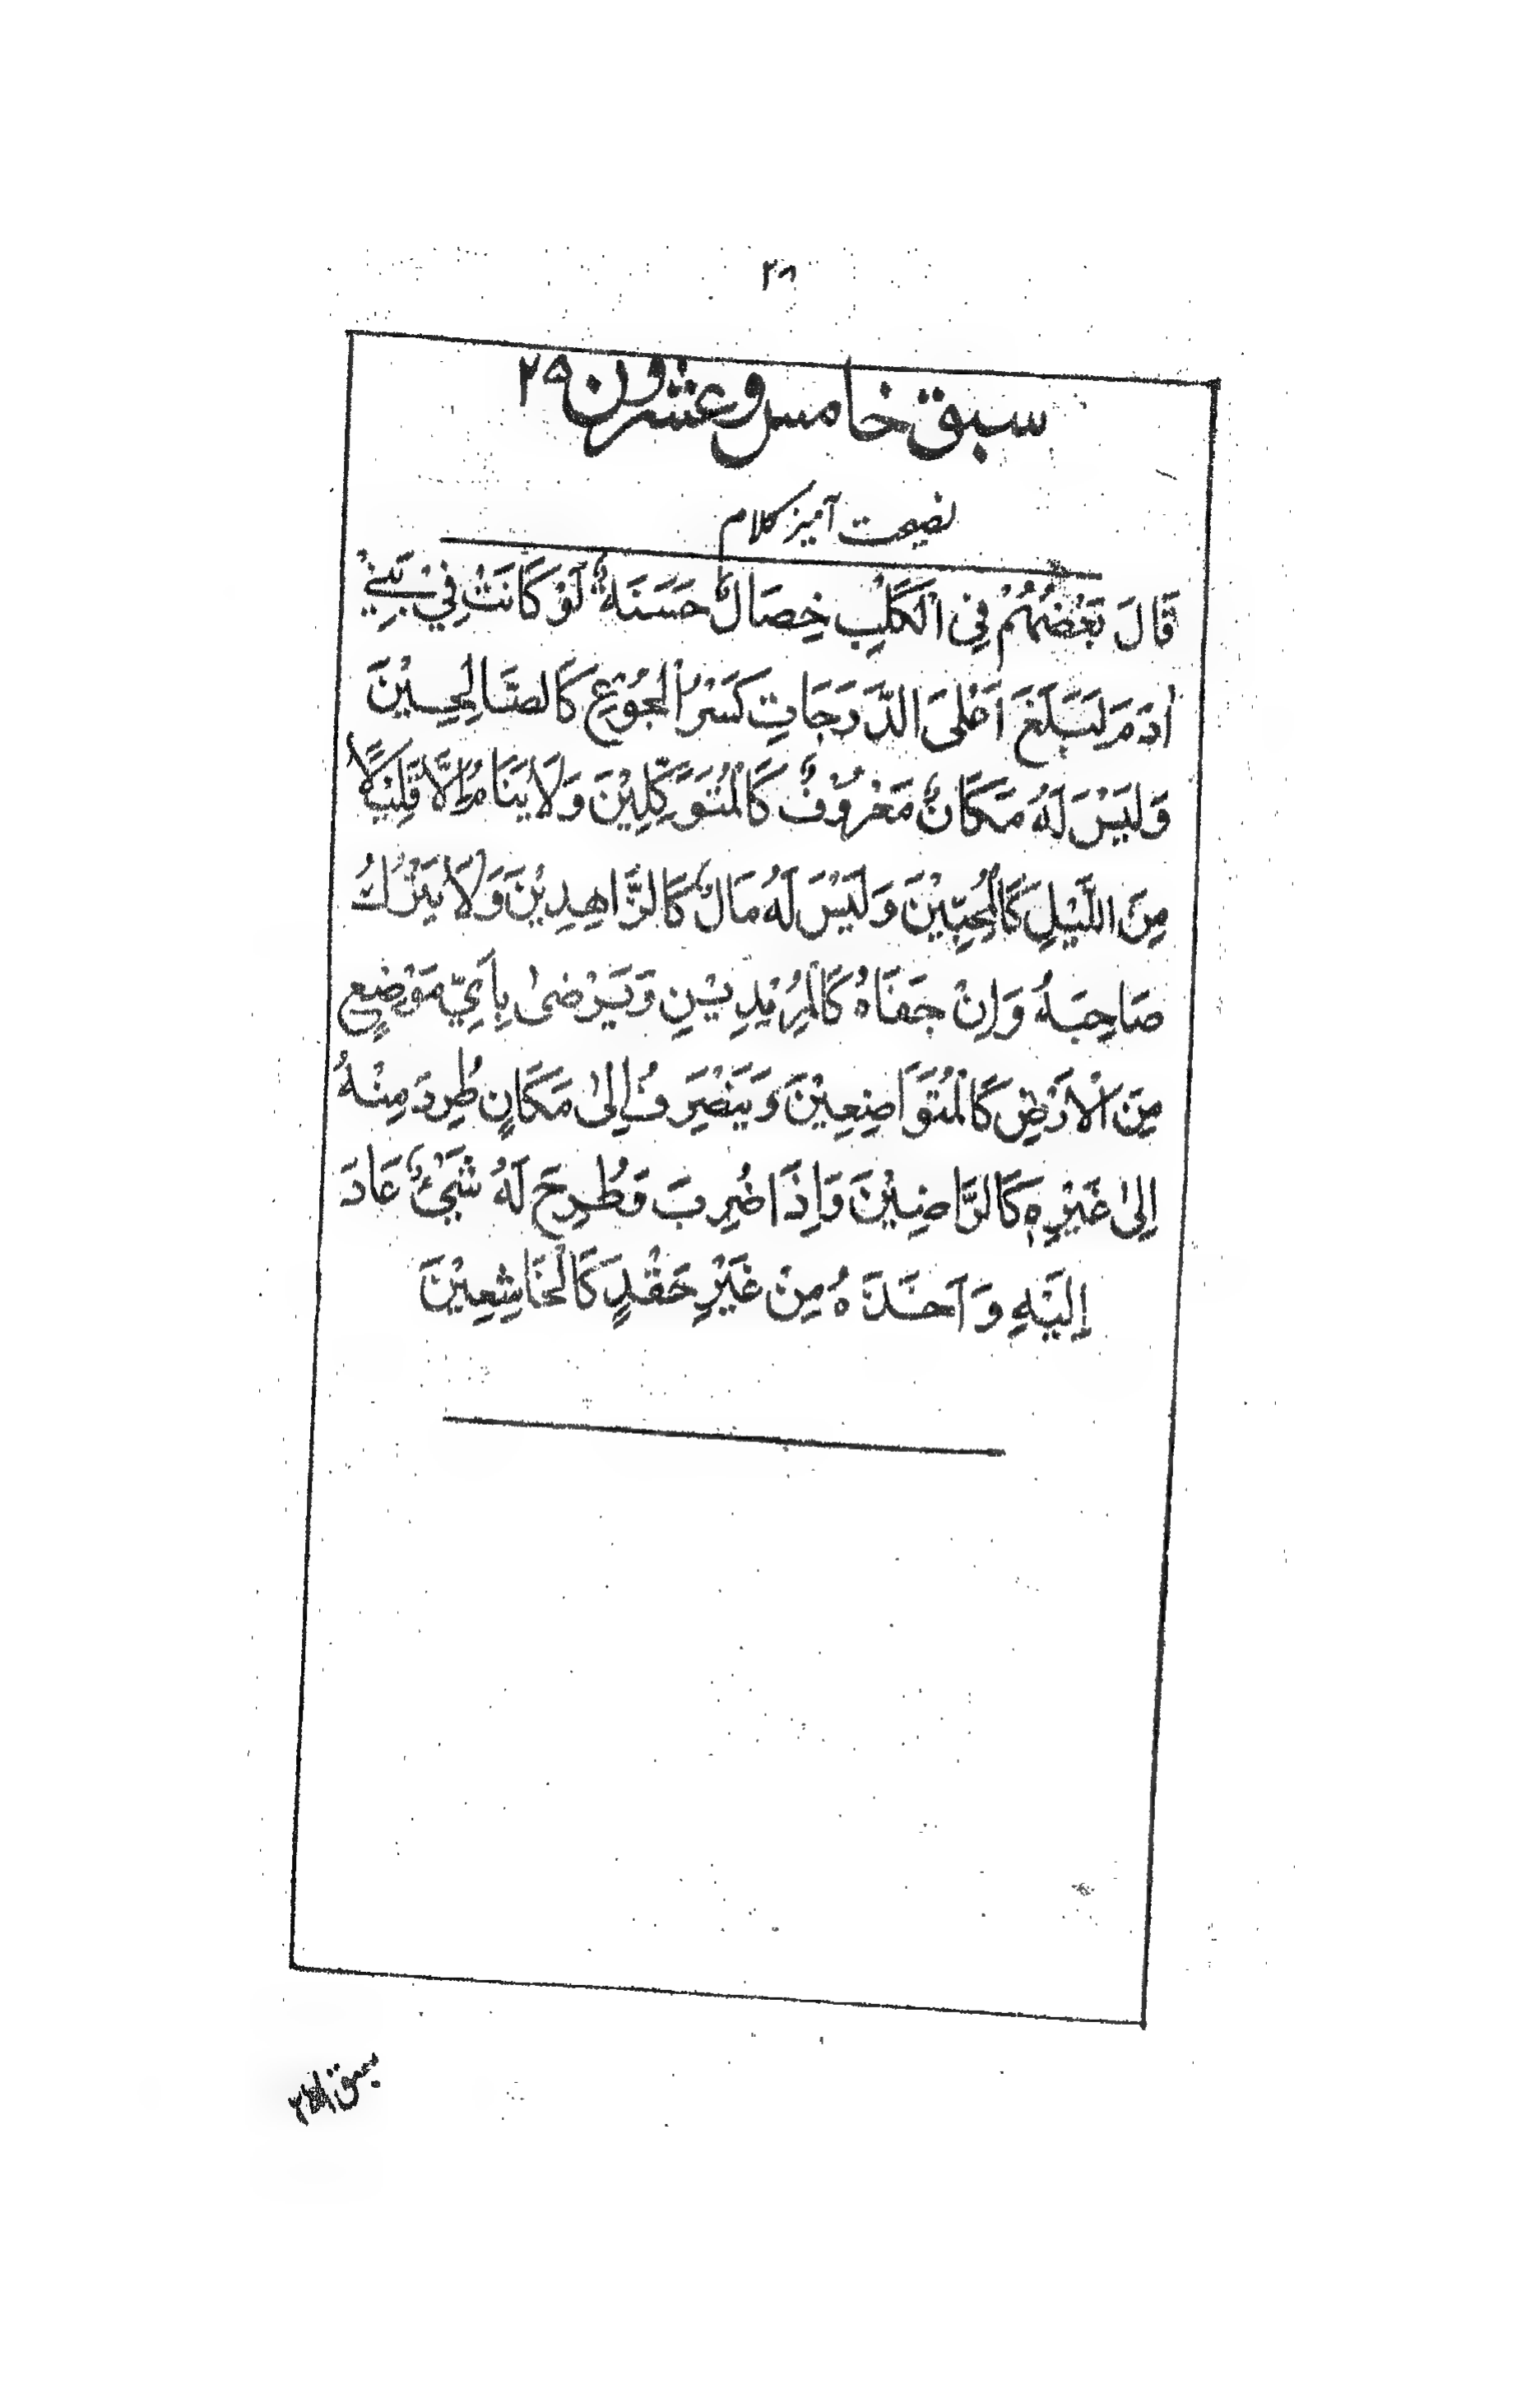 ۲۸
سبق خامس وعشرون ۲۵
نصیحت آمیز کلام
قَالَ بَعْضُهُمْ فِي الْكَلْبِ خِصَالٌ حَسَنَةٌ لَوْ كَانَتْ فِيْ بَنِيْ
اٰدَمَ لَبَلَغَ اَعْلٰى الدَّرَجَاتِ كَسْرُ الْجُوْعِ كَالصَّالِحِيْنَ
وَلَيْسَ لَهُ مَكَانٌ مَعْرُوْفٌ كَالْمُتَوَكِّلِيْنَ وَلَا يَنَامُ اِلَّا قَلِيْلًا
مِنَ اللَّيْلِ كَالْمُحِبِّيْنَ وَلَيْسَ لَهُ مَالٌ كَالزَّاهِدِيْنَ وَلَا يَتْرُكُ
صَاحِبَهُ وَاِنْ جَفَاهُ كَالْمُرِيْدِيْنِ وَيَرْضٰى بِاَيِّ مَوْضِعٍ
مِنَ الْاَرْضِ كَالْمُتَوَاضِعِيْنَ وَيَنْصَرِفُ اِلٰى مَكَانٍ طُرِدَ مِنْهُ
اِلٰى غَيْرِهٖ كَالرَّاضِيْنَ وَاِذَا ضُرِبَ وَطُرِحَ لَهُ شَيْئٌ عَادَ
إِلَيْهِ وَ اَخَذَهُ مِنْ غَيْرِ حَقْدٍ كَالْخَاشِعِيْنَ